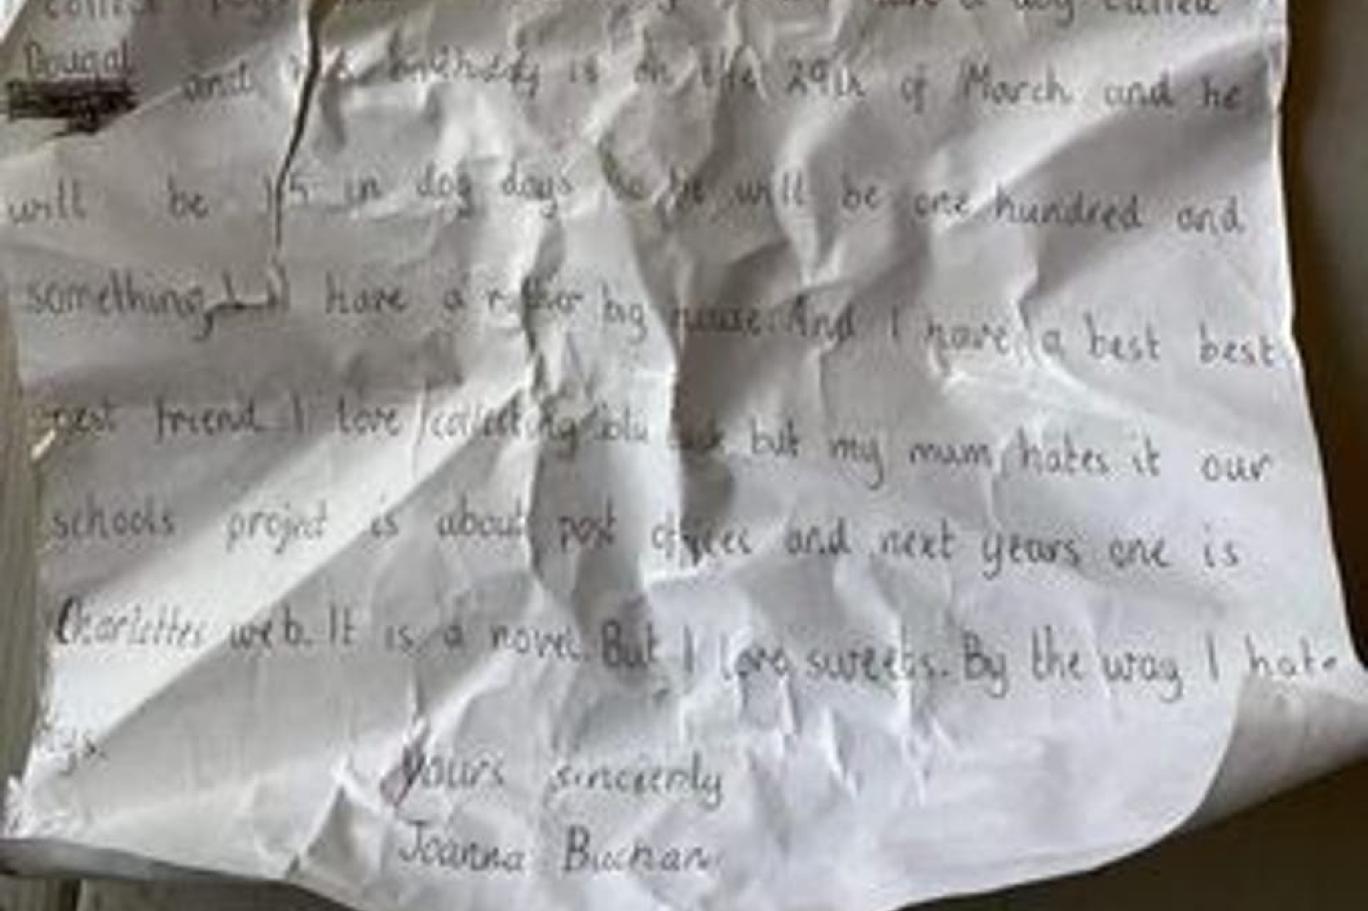 have a dog called
Dougal and birthday is on the 29th of March and he
will be 15 in dog days so he will be one hundred and
something, I have a rather big house. And I have a best best
best friend. I love collecting but my mum hates it our
schools project is about post offices and next years one is
Charlottes web. It is a novel. But I love sweets. By the way I hate
yours sincerly
Joanna Buchan